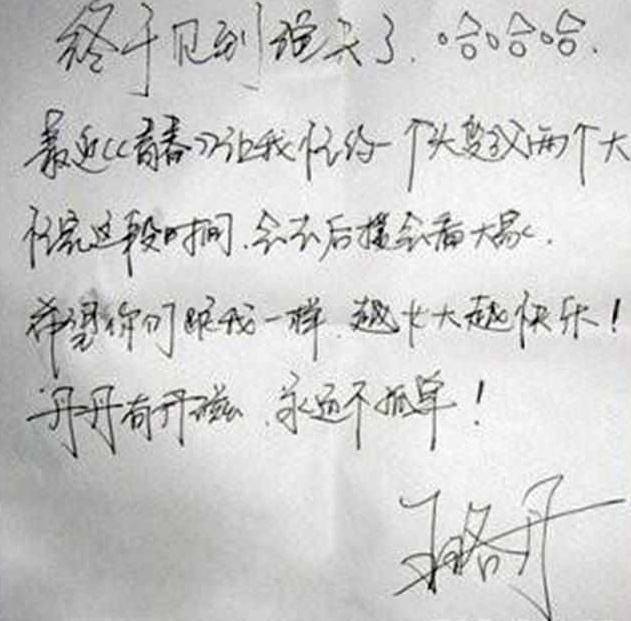 终于见到了.哈哈哈.
最近《青春》让我忙一个头变两个大
忙完这段时间.会去后援会看大家.
希望你们跟我一样.越长大越快乐!
丹丹有丹磁.永远不孤单!
王珞丹